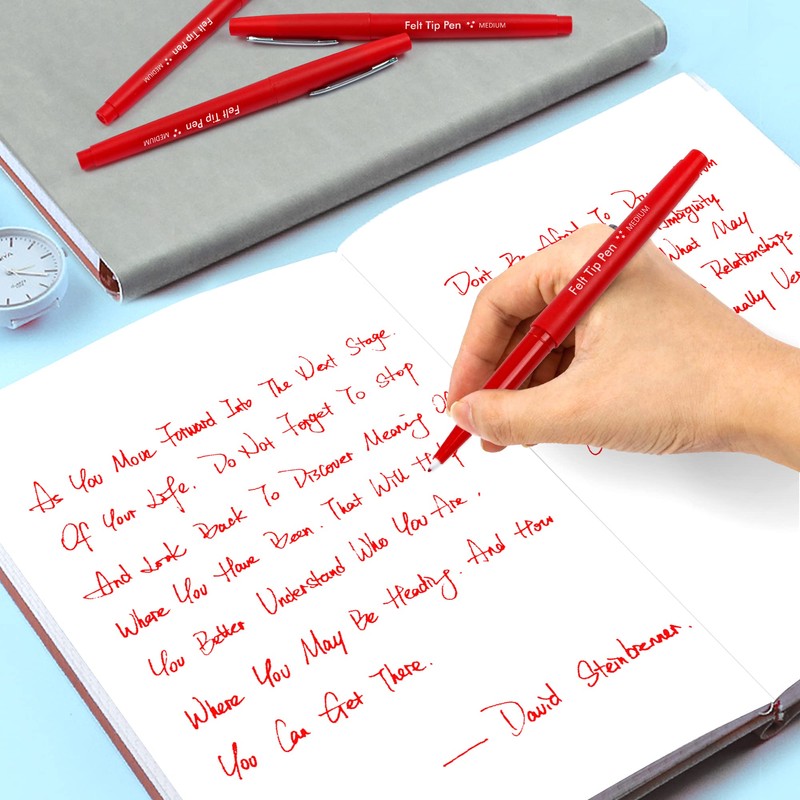 Felt Tip Pen MEDIUM
Felt Tip Pen MEDIUM
Felt Tip Pen MEDIUM
Felt Tip Pen MEDIUM
As You Move Forward Into The Next Stage.
Of Your Life. Do Not Forget To Stop
And Look Back To Discover Meaning Of
Where You Have Been. That Will Help
You Better Understand Who You Are.
Where You May Be Heading. And How
You Can Get There.
— David Steinbrenner.
Don't Be Afraid To
Ambiguity
What May
Relationships